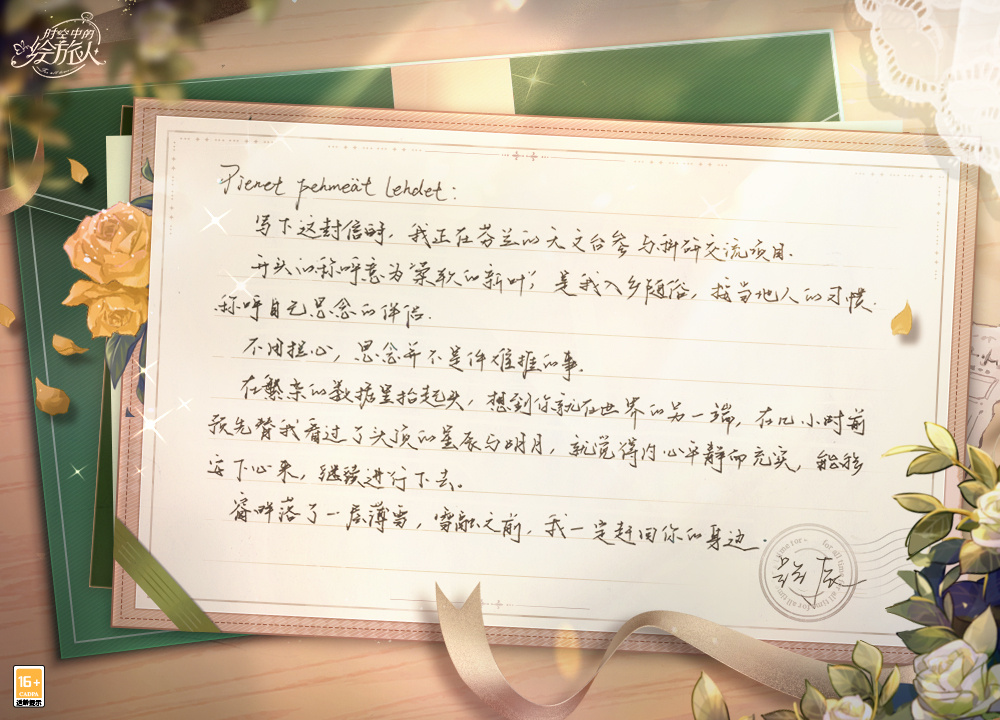 时空中的
绘旅人
Pienet pehmeät lehdet:
写下这封信时，我正在芬兰的天文台参与科研交流项目.
开头的称呼意为"柔软的新叶"，是我入乡随俗，按当地人的习惯.
称呼自己思念的伴侣.
不用担心，思念并不是件难捱的事.
在繁杂的数据里抬起头，想到你就在世界的另一端，在几小时前
预先替我看过了头顶的星辰与明月，就觉得内心平静而充实，能够
安下心来，继续进行下去。
窗畔落了一层薄雪，雪融之前，我一定赶回你的身边.
time for
for all time
all time for
16+
CADPA
适龄提示